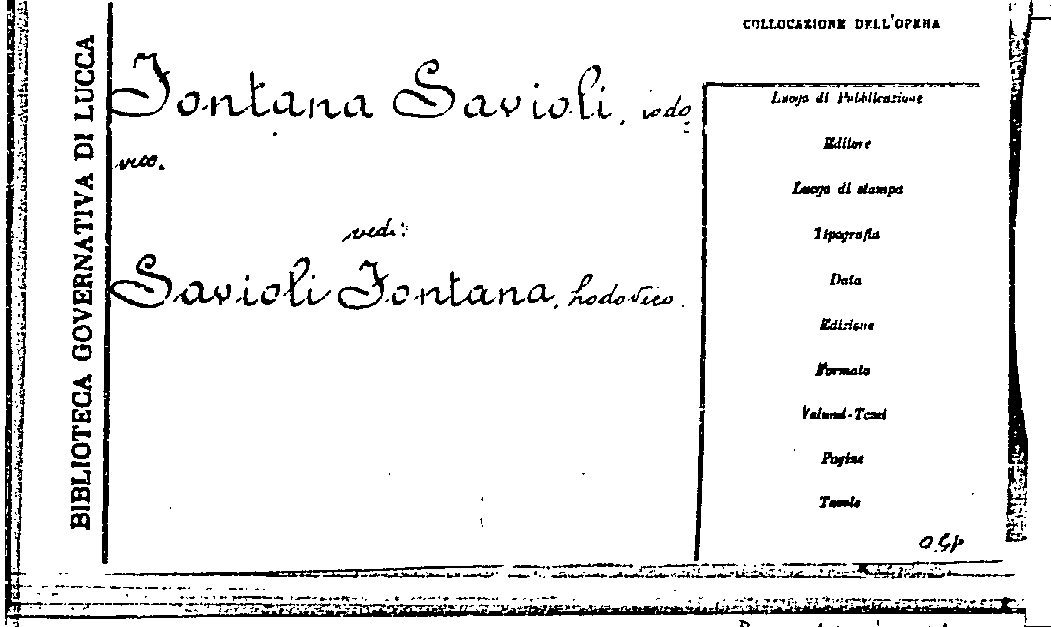 BIBLIOTECA GOVERNATIVA DI LUCCA
COLLOCAZIONE DELL'OPERA
Fontana Savioli, lodo-
vico.
vedi:
Savioli Fontana, Lodovico.
Luogo di Pubblicazione
Editore
Luogo di stampa
Tipografia
Data
Edizione
Formato
Volumi-Tomi
Pagine
Tavole